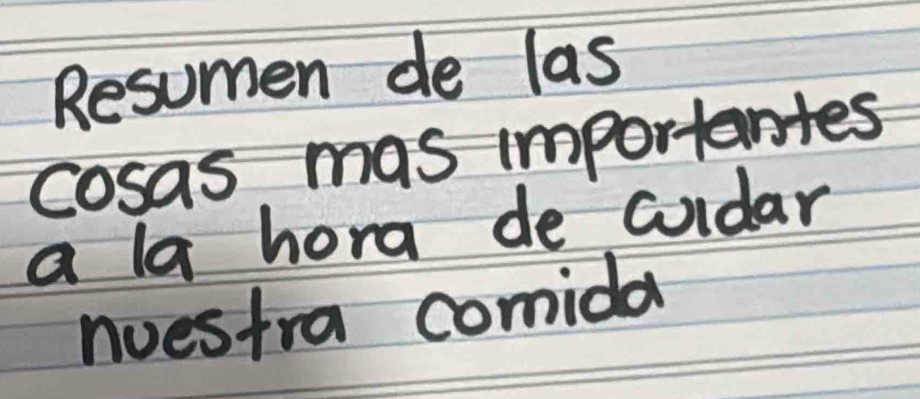 Resumen de las
cosas mas importantes
a la hora de cuidar
nuestra comida